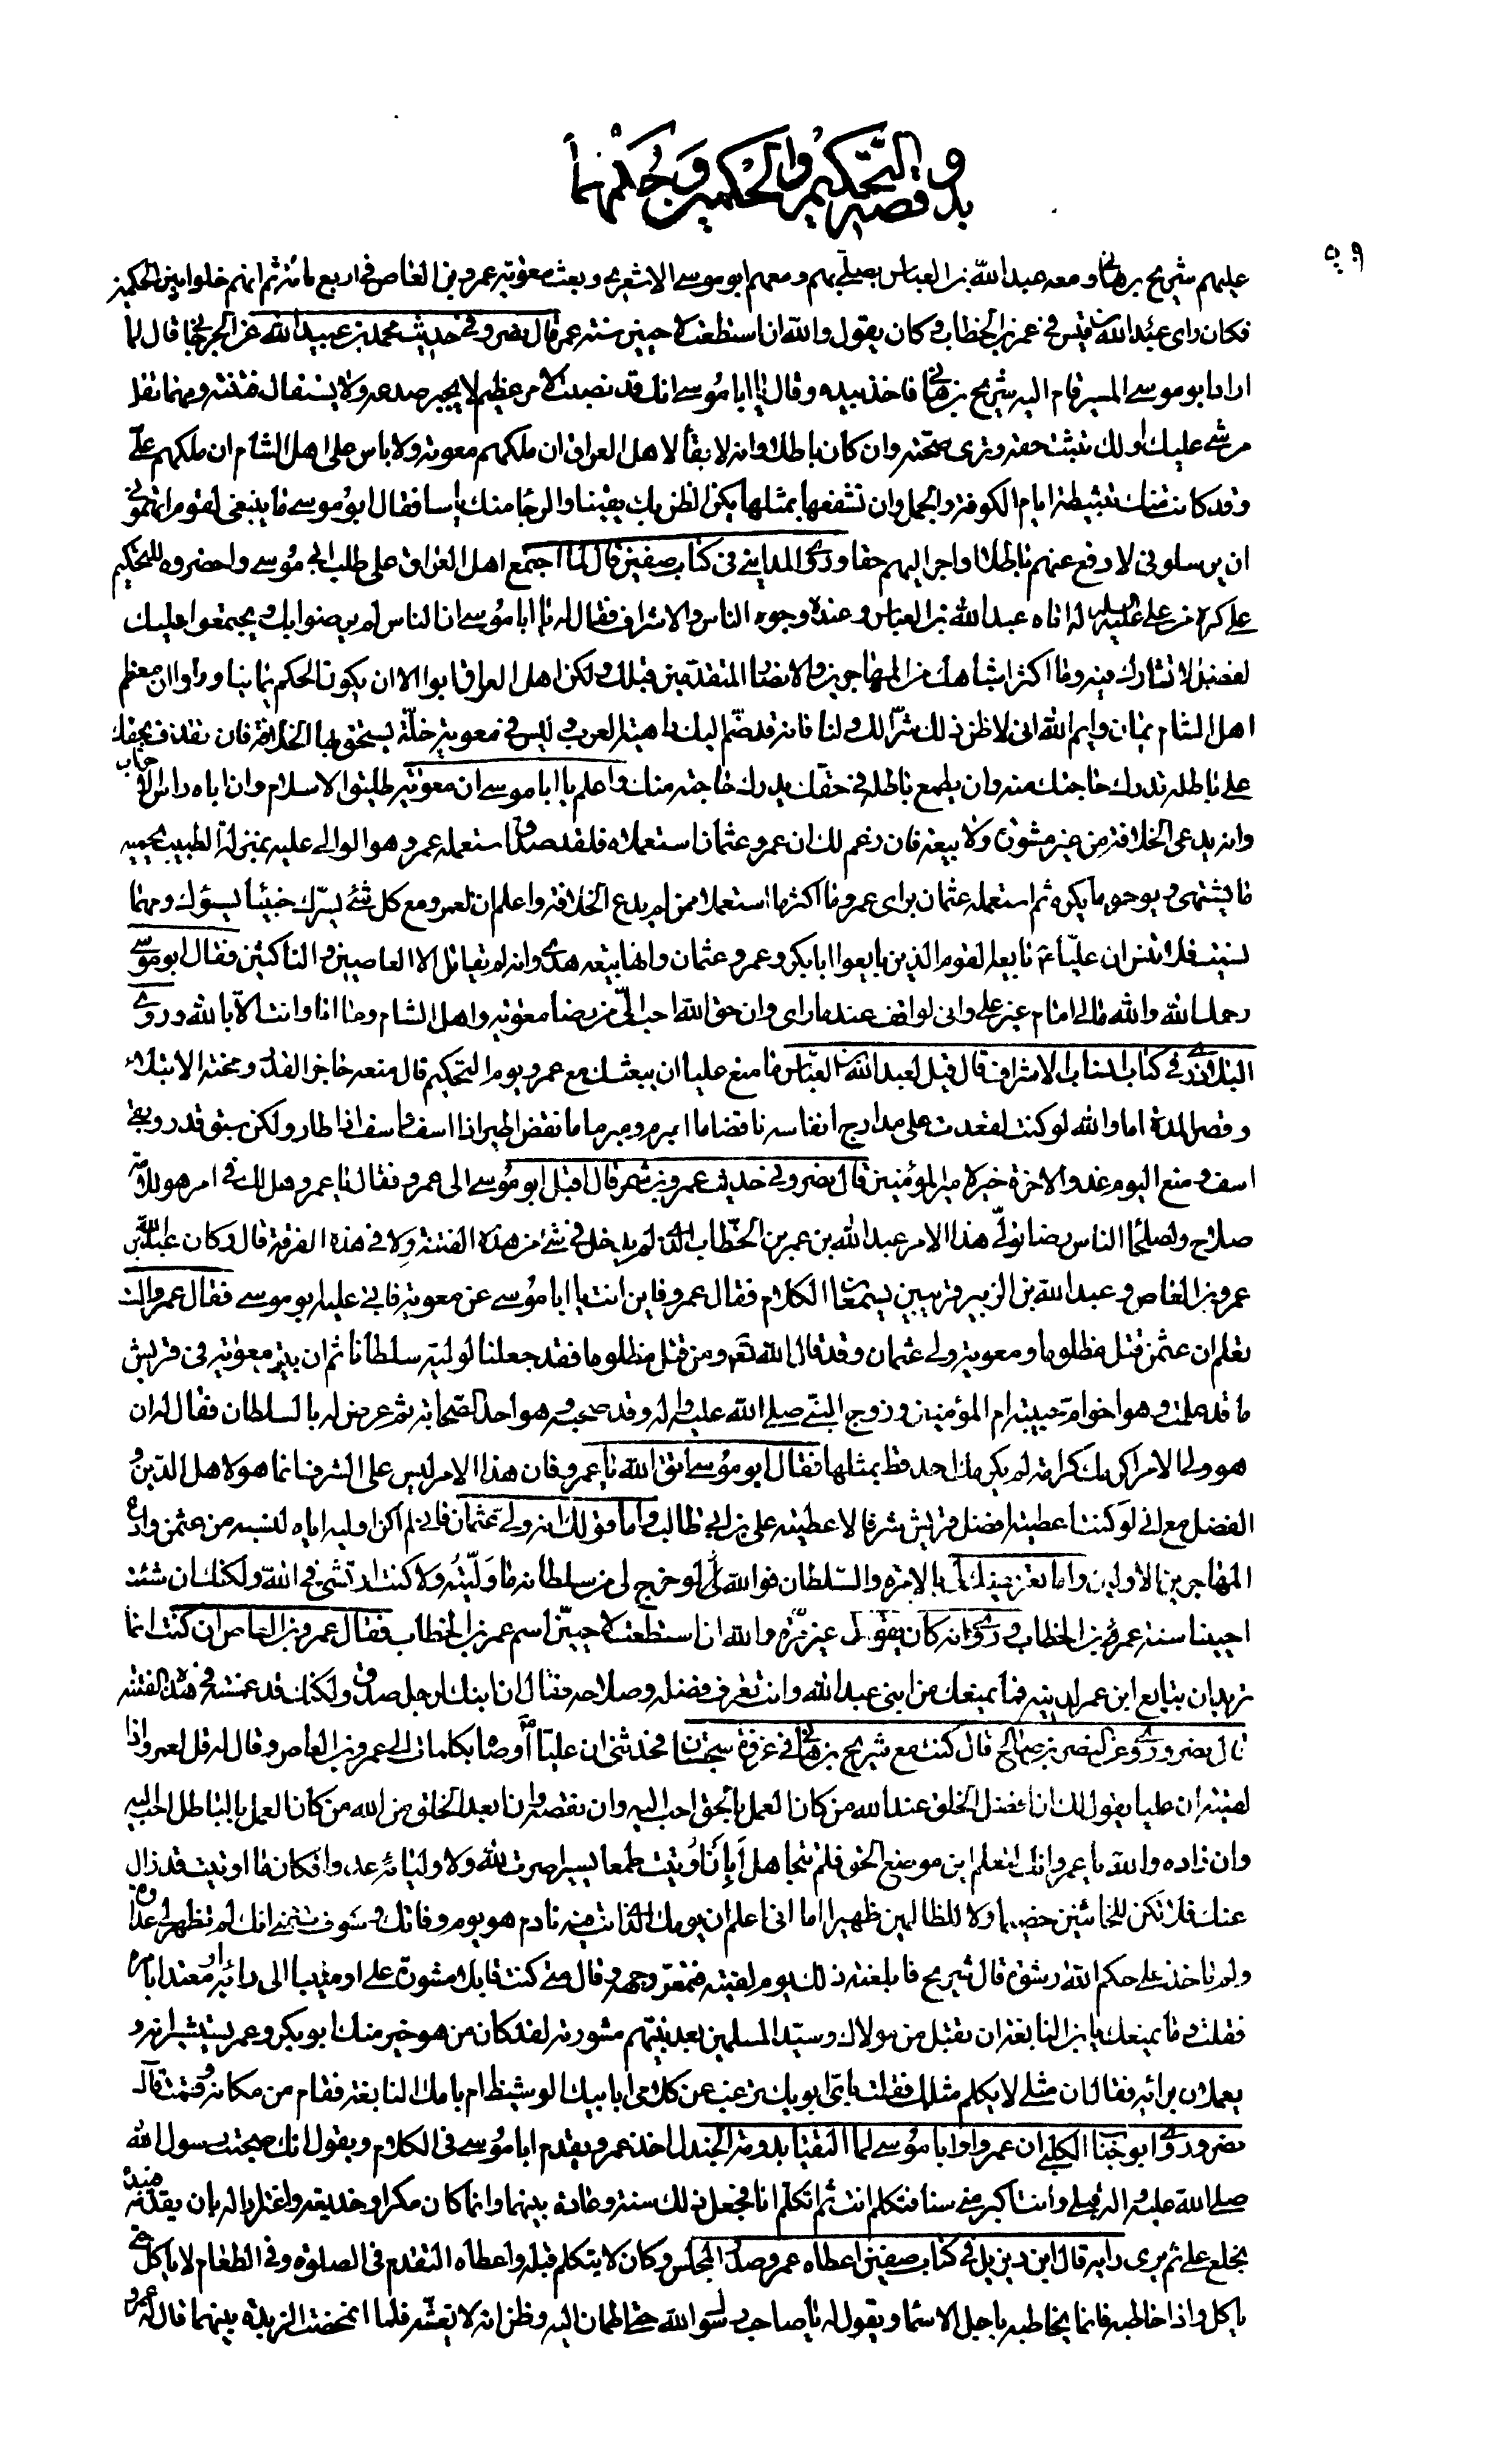 بدو قصة التحكيم والحكمين وحكمهما
عليهم شريح بن هاني ومعه عبد الله بن العباس يصلي بهم ومعهم ابو موسى الاشعري وبعث معوية عمرو بن العاص في اربع مائة ثم انهم خلوا بين الحكمين
فكان راى عبد الله بن قيس في عمر بن الخطاب وكان يقول والله ان استطعت لاحيين سنة عمر قال نصر وفي حديث محمد بن عبيد الله عن الجرجاني قال لما
اراد ابو موسى المسير قام اليه شريح بن هاني فاخذ بيده وقال يا ابا موسى انك قد نصبت لامر عظيم لا يجبر صدعه ولا يستقال فتنته ومهما تقل
من شئ عليك او لك تثبت حقه وترى صحته وان كان باطلا وانه لا بقاء لاهل العراق ان ملكهم معوية ولا باس على اهل الشام ان ملكهم علي
وقد كانت منك تثبيطة ايام الكوفة والجمل وان تشفعها بمثلها يكن الظن بك يقينا والرجا منك ياسا فقال ابو موسى ما ينبغي لقوم اتهموني
ان يرسلوني لادفع عنهم باطلا واجر اليهم حقا وروى المدايني في كتاب صفين قال لما اجتمع اهل العراق على طلب ابي موسى واحضروه للتحكيم
على كره من علي عليه السلام له اتاه عبد الله بن العباس وعنده وجوه الناس والاشراف فقال له يا ابا موسى ان الناس لم يرضوا بك ويجتمعوا عليك
لفضل لا تشارك فيه وما اكثر اشباهك من المهاجرين والانصار المتقدمين قبلك ولكن اهل العراق ابوا الا ان يكون الحكم يمانيا وراوا ان معظم
اهل الشام يمان وايم الله اني لاظن ذلك شرا لك ولنا فانه قد ضم اليك داهية العرب وليس في معوية خلة يستحق بها الخلافة فان تقذف بحقك
على باطله تدرك حاجتك منه وان يطمع باطله في حقك يدرك حاجته منك واعلم يا ابا موسى ان معوية طليق الاسلام وان اباه راس الاحزاب
وانه يدعى الخلافة من غير مشورة ولا بيعة فان زعم لك ان عمر وعثمان استعملاه فلقد صدق استعمله عمر وهو الوالي عليه بمنزلة الطبيب يحميه
ما يشتهي ويوجره ما يكره ثم استعمله عثمان براى عمر وما اكثر ما استعملا ممن لم يدع الخلافة واعلم ان لعمرو مع كل شئ يسرك خبيئا يسؤك ومهما
نسيت فلا تنس ان عليا ع بايعه القوم الذين بايعوا ابا بكر وعمر وعثمان وانها بيعة هدى وانه لم يقاتل الا العاصين والناكثين فقال ابو موسى
رحمك الله والله مالي امام غير علي واني لواقف عند ما راى وان حق الله احب الي من رضا معوية واهل الشام وما انا وانت الا بالله وروى
البلاذري في كتاب انساب الاشراف قال قيل لعبد الله بن العباس ما منع عليا ان يبعثك مع عمرو يوم التحكيم قال منعه حاجز القدر ومحنة الابتلاء
وقصر المدة اما والله لو كنت لقعدت على مدارج انفاسه ناقضا ما ابرم ومبرما ما نقض اطير اذا اسف واسف اذا طار ولكن سبق قدر وبقى
اسف ومع اليوم غد والاخرة خير لامير المؤمنين قال نصر وفي حديث عمرو بن شمر قال اقبل ابو موسى الى عمرو فقال يا عمرو هل لك في امر هو للامة
صلاح ولصلحاء الناس رضا نولى هذا الامر عبد الله بن عمر بن الخطاب الذي لم يدخل في شئ من هذه الفتنة ولا في هذه الفرقة قال وكان عبد الله بن
عمرو بن العاص وعبد الله بن الزبير قريبين يسمعان الكلام فقال عمرو فاين انت يا ابا موسى عن معوية فابى عليه ابو موسى فقال عمرو الست
تعلم ان عثمن قتل مظلوما ومعوية ولي عثمان وقد قال الله تع ومن قتل مظلوما فقد جعلنا لوليه سلطانا ثم ان بيت معوية في قريش
ما قد علمت وهو اخو ام حبيبة ام المؤمنين وزوج النبي صلى الله عليه واله وقد صحبه وهو احد الصحابة ثم عرض له بالسلطان فقال له ان
هو ولي الامر اكرمك كرامة لم يكرمك احد قط بمثلها فقال ابو موسى اتق الله يا عمرو فان هذا الامر ليس على الشرف انما هو لاهل الدين و
الفضل مع اني لو كنت اعطيته افضل قريش شرفا لاعطيته علي بن ابي طالب واما قولك انه ولي عثمان فاني لم اكن اوليه اياه لنسبه من عثمن وادع
المهاجرين الاولين واما تعريضك لي بالامرة والسلطان فوالله لو خرج لي من سلطانه ما وليته ولا كنت ارتشى في الله ولكنك ان شئت
احيينا سنة عمر بن الخطاب وروى انه كان يقول غير مرة والله ان استطعت لاحيين اسم عمر بن الخطاب فقال عمرو بن العاص ان كنت انما
تريد ان تبايع ابن عمر لدينه فما يمنعك من ابني عبد الله وانت تعرف فضله وصلاحه فقال ان ابنك لرجل صدق ولكنك قد غمسته في هذه الفتنة
قال نصر وروى عن النضر بن صالح قال كنت مع شريح بن هاني في غزوة سجستان فحدثني ان عليا ع اوصاه بكلمات الى عمرو بن العاص وقال له قل لعمرو اذا
لقيته ان عليا يقول لك ان افضل الخلق عند الله من كان العمل بالحق احب اليه وان نقصه وان ابعد الخلق من الله من كان العمل بالباطل احب اليه
وان زاده والله يا عمرو انك لتعلم اين موضع الحق فلم تتجاهل ابان اوتيت طمعا يسيرا صرت لله ولاوليائه عدوا فكان ما اوتيت قد زال
عنك فلا تكن للخائنين خصيما ولا للظالمين ظهيرا اما اني اعلم ان يومك الذي انت فيه نادم هو يوم وفاتك وسوف تتمنى انك لم تظهر لي عداوة
ولم تاخذ على حكم الله رشوة قال شريح فابلغته ذلك يوم لقيته فتمعر وجهه وقال متى كنت قابلا مشورة علي او منيبا الى رايه او معتدا بامره
فقلت وما يمنعك يا بن النابغة ان تقبل من مولاك وسيد المسلمين بعد نبيهم مشورته لقد كان من هو خير منك ابو بكر وعمر يستشيرانه و
يعملان برايه فقال ان مثلي لا يكلم مثلك فقلت باي ابويك ترغب عن كلامي بابيك الوشيظ ام بامك النابغة فقام من مكانه وقمت قال
نصر وروى ابو جناب الكلبي ان عمروا وابا موسى لما التقيا بدومة الجندل اخذ عمرو يقدم ابا موسى في الكلام ويقول انك صحبت رسول الله
صلى الله عليه واله قبلي وانت اكبر مني سنا فتكلم انت ثم اتكلم انا فجعل ذلك سنة وعادة بينهما وانما كان مكرا وخديعة واغترارا له بان يقدمه فيبدا
بخلع علي ثم يرى رايه قال ابن ديزيل في كتاب صفين اعطاه عمرو صدر المجلس وكان لا يتكلم قبله واعطاه التقدم في الصلوة وفي الطعام لا ياكل حتى
ياكل واذا خاطبه فانما يخاطبه باجل الاسماء ويقول له يا صاحب رسول الله حتى اطمان اليه وظن انه لا يغشه فلما انمخضت الزبدة بينهما قال له عمرو